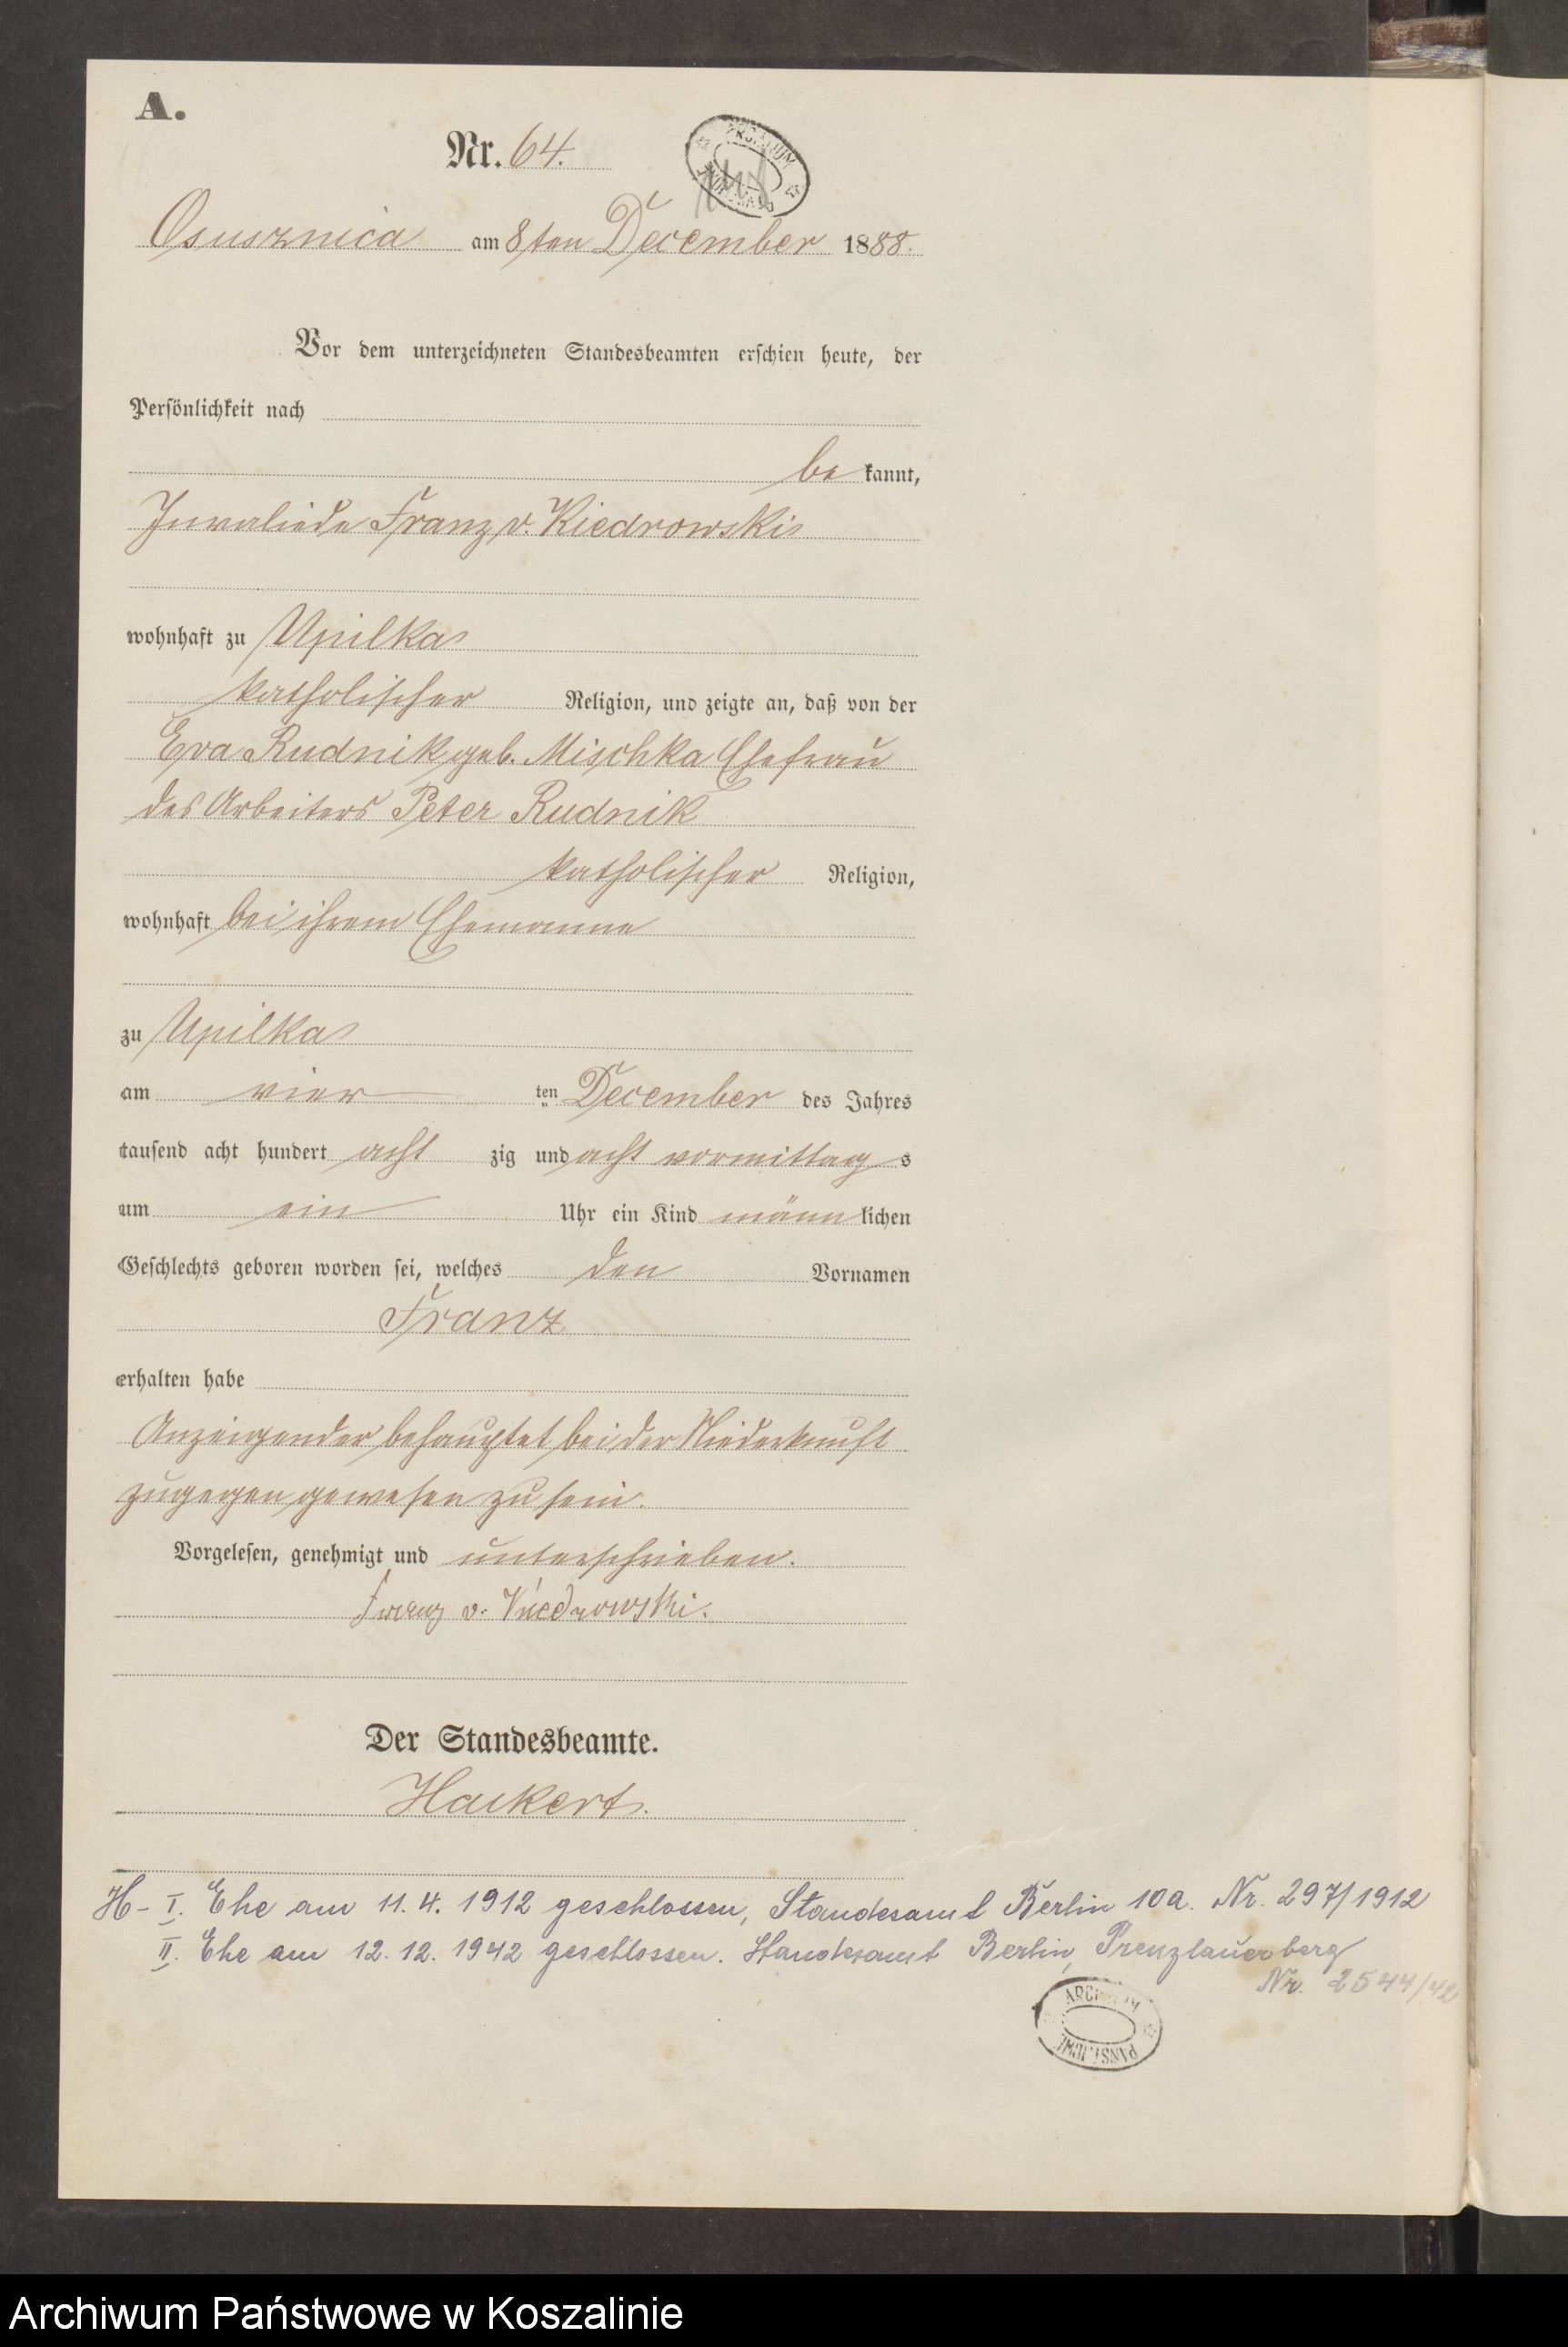 A.
Nr. 64.
Osusznica am 8ten December 1888.
Vor dem unterzeichneten Standesbeamten erschien heute, der
Persönlichkeit nach
be kannt,
Invaliede Franz v. Kiedrowski
wohnhaft zu Upilka
katholischer Religion, und zeigte an, daß von der
Eva Rudnik geb. Mischka Ehefrau
des Arbeiters Peter Rudnik
katholischer Religion,
wohnhaft bei ihrem Ehemanne
zu Upilka
am vier ten December des Jahres
tausend acht hundert acht zig und acht vormittag s
um ein Uhr ein Kind männ lichen
Geschlechts geboren worden sei, welches den Vornamen
Franz
erhalten habe
Anzeigender behauptet bei der Niederkunft
zugegen gewesen zu sein.
Vorgelesen, genehmigt und unterschrieben.
Franz v. Kiedrowski.
Der Standesbeamte.
Hackert.
H - I. Ehe am 11.4.1912 geschlossen, Standesamt Berlin 10a. Nr. 297/1912
II. Ehe am 12.12.1942 geschlossen. Standesamt Berlin, Prenzlauerberg
Nr. 2544/42
Archiwum Państwowe w Koszalinie